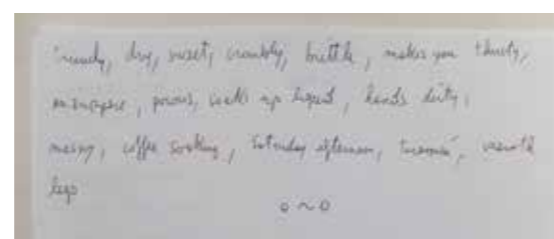 dry, sweet, crumbly, brittle, makes you thirsty,
porous, soaks up liquid, hands dirty,
messy, coffee soaking, Saturday afternoon,
legs